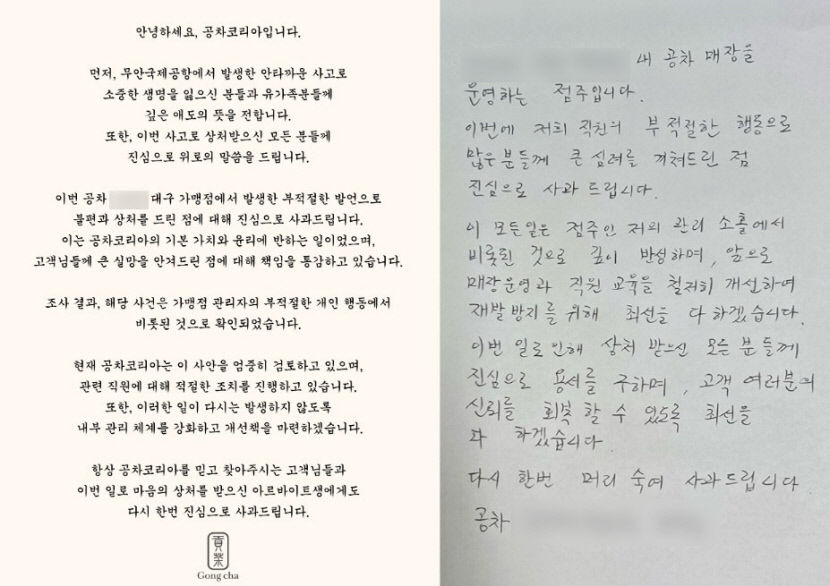 안녕하세요, 공차코리아입니다.
먼저, 무안국제공항에서 발생한 안타까운 사고로
소중한 생명을 잃으신 분들과 유가족분들께
깊은 애도의 뜻을 전합니다.
또한, 이번 사고로 상처받으신 모든 분들께
진심으로 위로의 말씀을 드립니다.
이번 공차 대구 가맹점에서 발생한 부적절한 발언으로
불편과 상처를 드린 점에 대해 진심으로 사과드립니다.
이는 공차코리아의 기본 가치와 윤리에 반하는 일이었으며,
고객님들께 큰 실망을 안겨드린 점에 대해 책임을 통감하고 있습니다.
조사 결과, 해당 사건은 가맹점 관리자의 부적절한 개인 행동에서
비롯된 것으로 확인되었습니다.
현재 공차코리아는 이 사안을 엄중히 검토하고 있으며,
관련 직원에 대해 적절한 조치를 진행하고 있습니다.
또한, 이러한 일이 다시는 발생하지 않도록
내부 관리 체계를 강화하고 개선책을 마련하겠습니다.
항상 공차코리아를 믿고 찾아주시는 고객님들과
이번 일로 마음의 상처를 받으신 아르바이트생에게도
다시 한번 진심으로 사과드립니다.
貢茶
Gong cha
내 공차 매장을
운영하는 점주입니다.
이번에 저희 직원의 부적절한 행동으로
많은분들께 큰 심려를 끼쳐드린 점
진심으로 사과 드립니다.
이 모든일은 점주인 저의 관리 소홀에서
비롯된 것으로 깊이 반성하며, 앞으로
매장운영과 직원 교육을 철저히 개선하여
재발방지를 위해 최선을 다하겠습니다.
이번 일로 인해 상처 받으신 모든 분들께
진심으로 용서를 구하며, 고객 여러분의
신뢰를 회복 할 수 있도록 최선을
다 하겠습니다.
다시 한번 머리 숙여 사과드립니다
공차